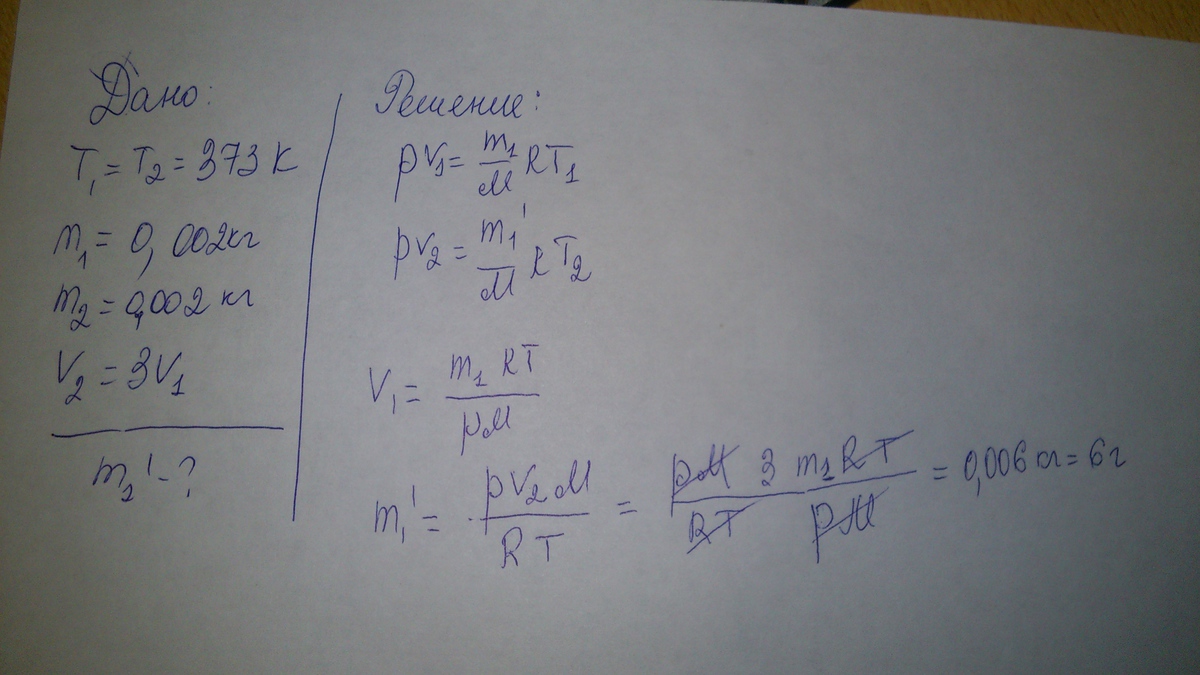 Дано:
T₁ = T₂ = 373 К
m₁ = 0,002кг
m₂ = 0,002 кг
V₂ = 3V₁
m₁' - ?
Решение:
pV₁ = m₁/M RT₁
pV₂ = m₁'/M RT₂
V₁ = m₁ RT / pM
m₁' = pV₂M / RT = pM 3 m₁RT / RT pM = 0,006 кг = 6г